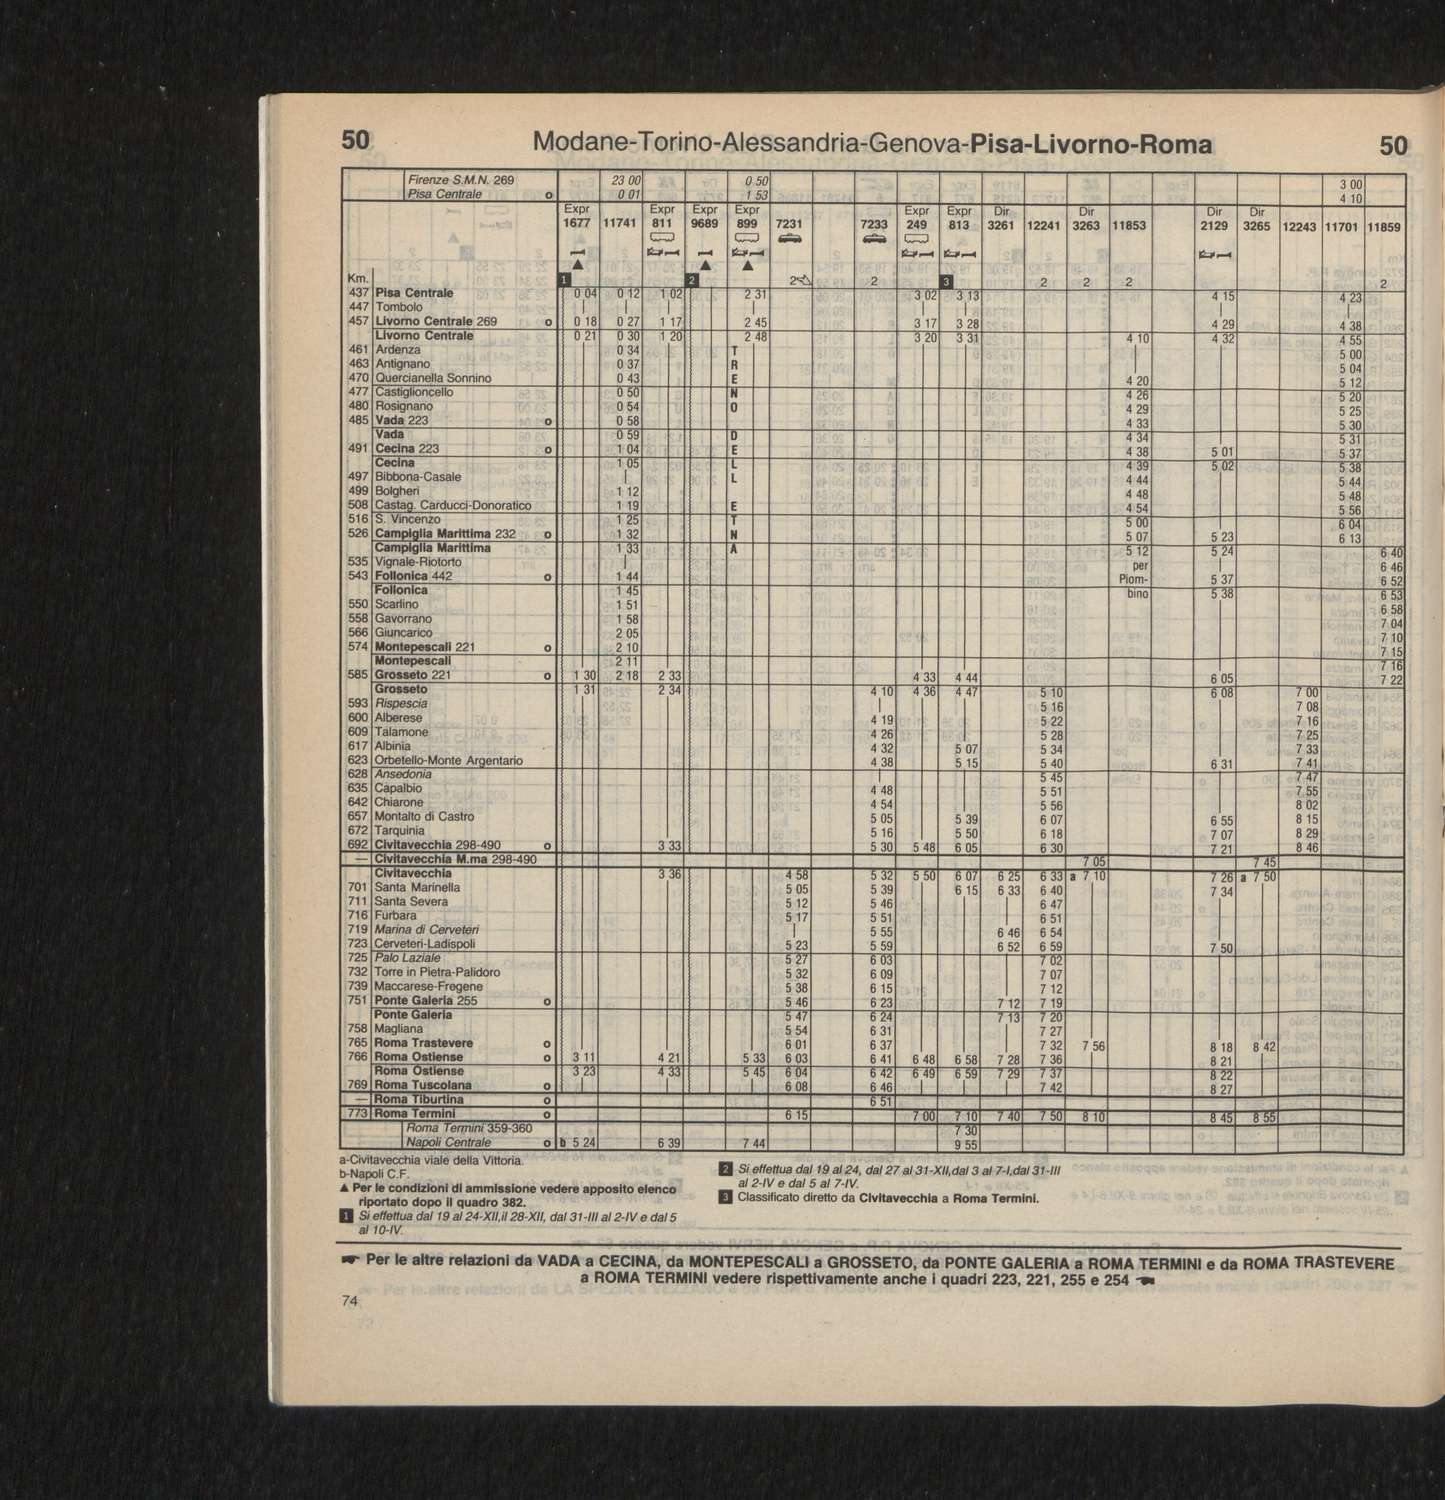 50 Modane-Torino-Alessandria-Genova-Pisa-Livorno-Roma 50
Firenze S.M.N. 269 23 00 0 50 3 00
Pisa Centrale o 0 01 1 53 4 10
Expr Expr Expr Expr Expr Expr Dir Dir Dir Dir
1677 11741 811 9689 899 7231 7233 249 813 3261 12241 3263 11853 2129 3265 12243 11701 11859
Km. 1 2 2 2 3 2 2 2 2
437 Pisa Centrale 0 04 0 12 1 02 2 31 3 02 3 13 4 15 4 23
447 Tombolo
457 Livorno Centrale 269 o 0 18 0 27 1 17 2 45 3 17 3 28 4 29 4 38
Livorno Centrale 0 21 0 30 1 20 2 48 3 20 3 31 4 10 4 32 4 55
461 Ardenza 0 34 T 5 00
463 Antignano 0 37 R 5 04
470 Quercianella Sonnino 0 43 E 4 20 5 12
477 Castiglioncello 0 50 N 4 26 5 20
480 Rosignano 0 54 O 4 29 5 25
485 Vada 223 o 0 58 4 33 5 30
Vada 0 59 D 4 34 5 31
491 Cecina 223 o 1 04 E 4 38 5 01 5 37
Cecina 1 05 L 4 39 5 02 5 38
497 Bibbona-Casale L 4 44 5 44
499 Bolgheri 1 12 4 48 5 48
508 Castag. Carducci-Donoratico 1 19 E 4 54 5 56
516 S. Vincenzo 1 25 T 5 00 6 04
526 Campiglia Marittima 232 o 1 32 N 5 07 5 23 6 13
Campiglia Marittima 1 33 A 5 12 5 24 6 40
535 Vignale-Riotorto per 6 46
543 Follonica 442 o 1 44 Piom- 5 37 6 52
Follonica 1 45 bino 5 38 6 53
550 Scarlino 1 51 6 58
558 Gavorrano 1 58 7 04
566 Giuncarico 2 05 7 10
574 Montepescali 221 o 2 10 7 15
Montepescali 2 11 7 16
585 Grosseto 221 o 1 30 2 18 2 33 4 33 4 44 6 05 7 22
Grosseto 1 31 2 34 4 10 4 36 4 47 5 10 6 08 7 00
593 Rispescia 5 16 7 08
600 Alberese 4 19 5 22 7 16
609 Talamone 4 26 5 28 7 25
617 Albinia 4 32 5 07 5 34 7 33
623 Orbetello-Monte Argentario 4 38 5 15 5 40 6 31 7 41
628 Ansedonia 5 45 7 47
635 Capalbio 4 48 5 51 7 55
642 Chiarone 4 54 5 56 8 02
657 Montalto di Castro 5 05 5 39 6 07 6 55 8 15
672 Tarquinia 5 16 5 50 6 18 7 07 8 29
692 Civitavecchia 298-490 o 3 33 5 30 5 48 6 05 6 30 7 21 8 46
— Civitavecchia M.ma 298-490 7 05 7 45
Civitavecchia 3 36 4 58 5 32 5 50 6 07 6 25 6 33 a 7 10 7 26 a 7 50
701 Santa Marinella 5 05 5 39 6 15 6 33 6 40 7 34
711 Santa Severa 5 12 5 46 6 47
716 Furbara 5 17 5 51 6 51
719 Marina di Cerveteri 5 55 6 46 6 54
723 Cerveteri-Ladispoli 5 23 5 59 6 52 6 59 7 50
725 Palo Laziale 5 27 6 03 7 02
732 Torre in Pietra-Palidoro 5 32 6 09 7 07
739 Maccarese-Fregene 5 38 6 15 7 12
751 Ponte Galeria 255 o 5 46 6 23 7 12 7 19
Ponte Galeria 5 47 6 24 7 13 7 20
758 Magliana 5 54 6 31 7 27
765 Roma Trastevere o 6 01 6 37 7 32 7 56 8 18 8 42
766 Roma Ostiense o 3 11 4 21 5 33 6 03 6 41 6 48 6 58 7 28 7 36 8 21
Roma Ostiense 3 23 4 33 5 45 6 04 6 42 6 49 6 59 7 29 7 37 8 22
769 Roma Tuscolana o 6 08 6 46 7 42 8 27
— Roma Tiburtina o 6 51
773 Roma Termini o 6 15 7 00 7 10 7 40 7 50 8 10 8 45 8 55
Roma Termini 359-360 7 30
Napoli Centrale o b 5 24 6 39 7 44 9 55
a-Civitavecchia viale della Vittoria.
b-Napoli C.F.
▲ Per le condizioni di ammissione vedere apposito elenco
riportato dopo il quadro 382.
1 Si effettua dal 19 al 24-XII,il 28-XII, dal 31-III al 2-IV e dal 5
al 10-IV.
2 Si effettua dal 19 al 24, dal 27 al 31-XII,dal 3 al 7-I,dal 31-III
al 2-IV e dal 5 al 7-IV.
3 Classificato diretto da Civitavecchia a Roma Termini.
Per le altre relazioni da VADA a CECINA, da MONTEPESCALI a GROSSETO, da PONTE GALERIA a ROMA TERMINI e da ROMA TRASTEVERE
a ROMA TERMINI vedere rispettivamente anche i quadri 223, 221, 255 e 254
74